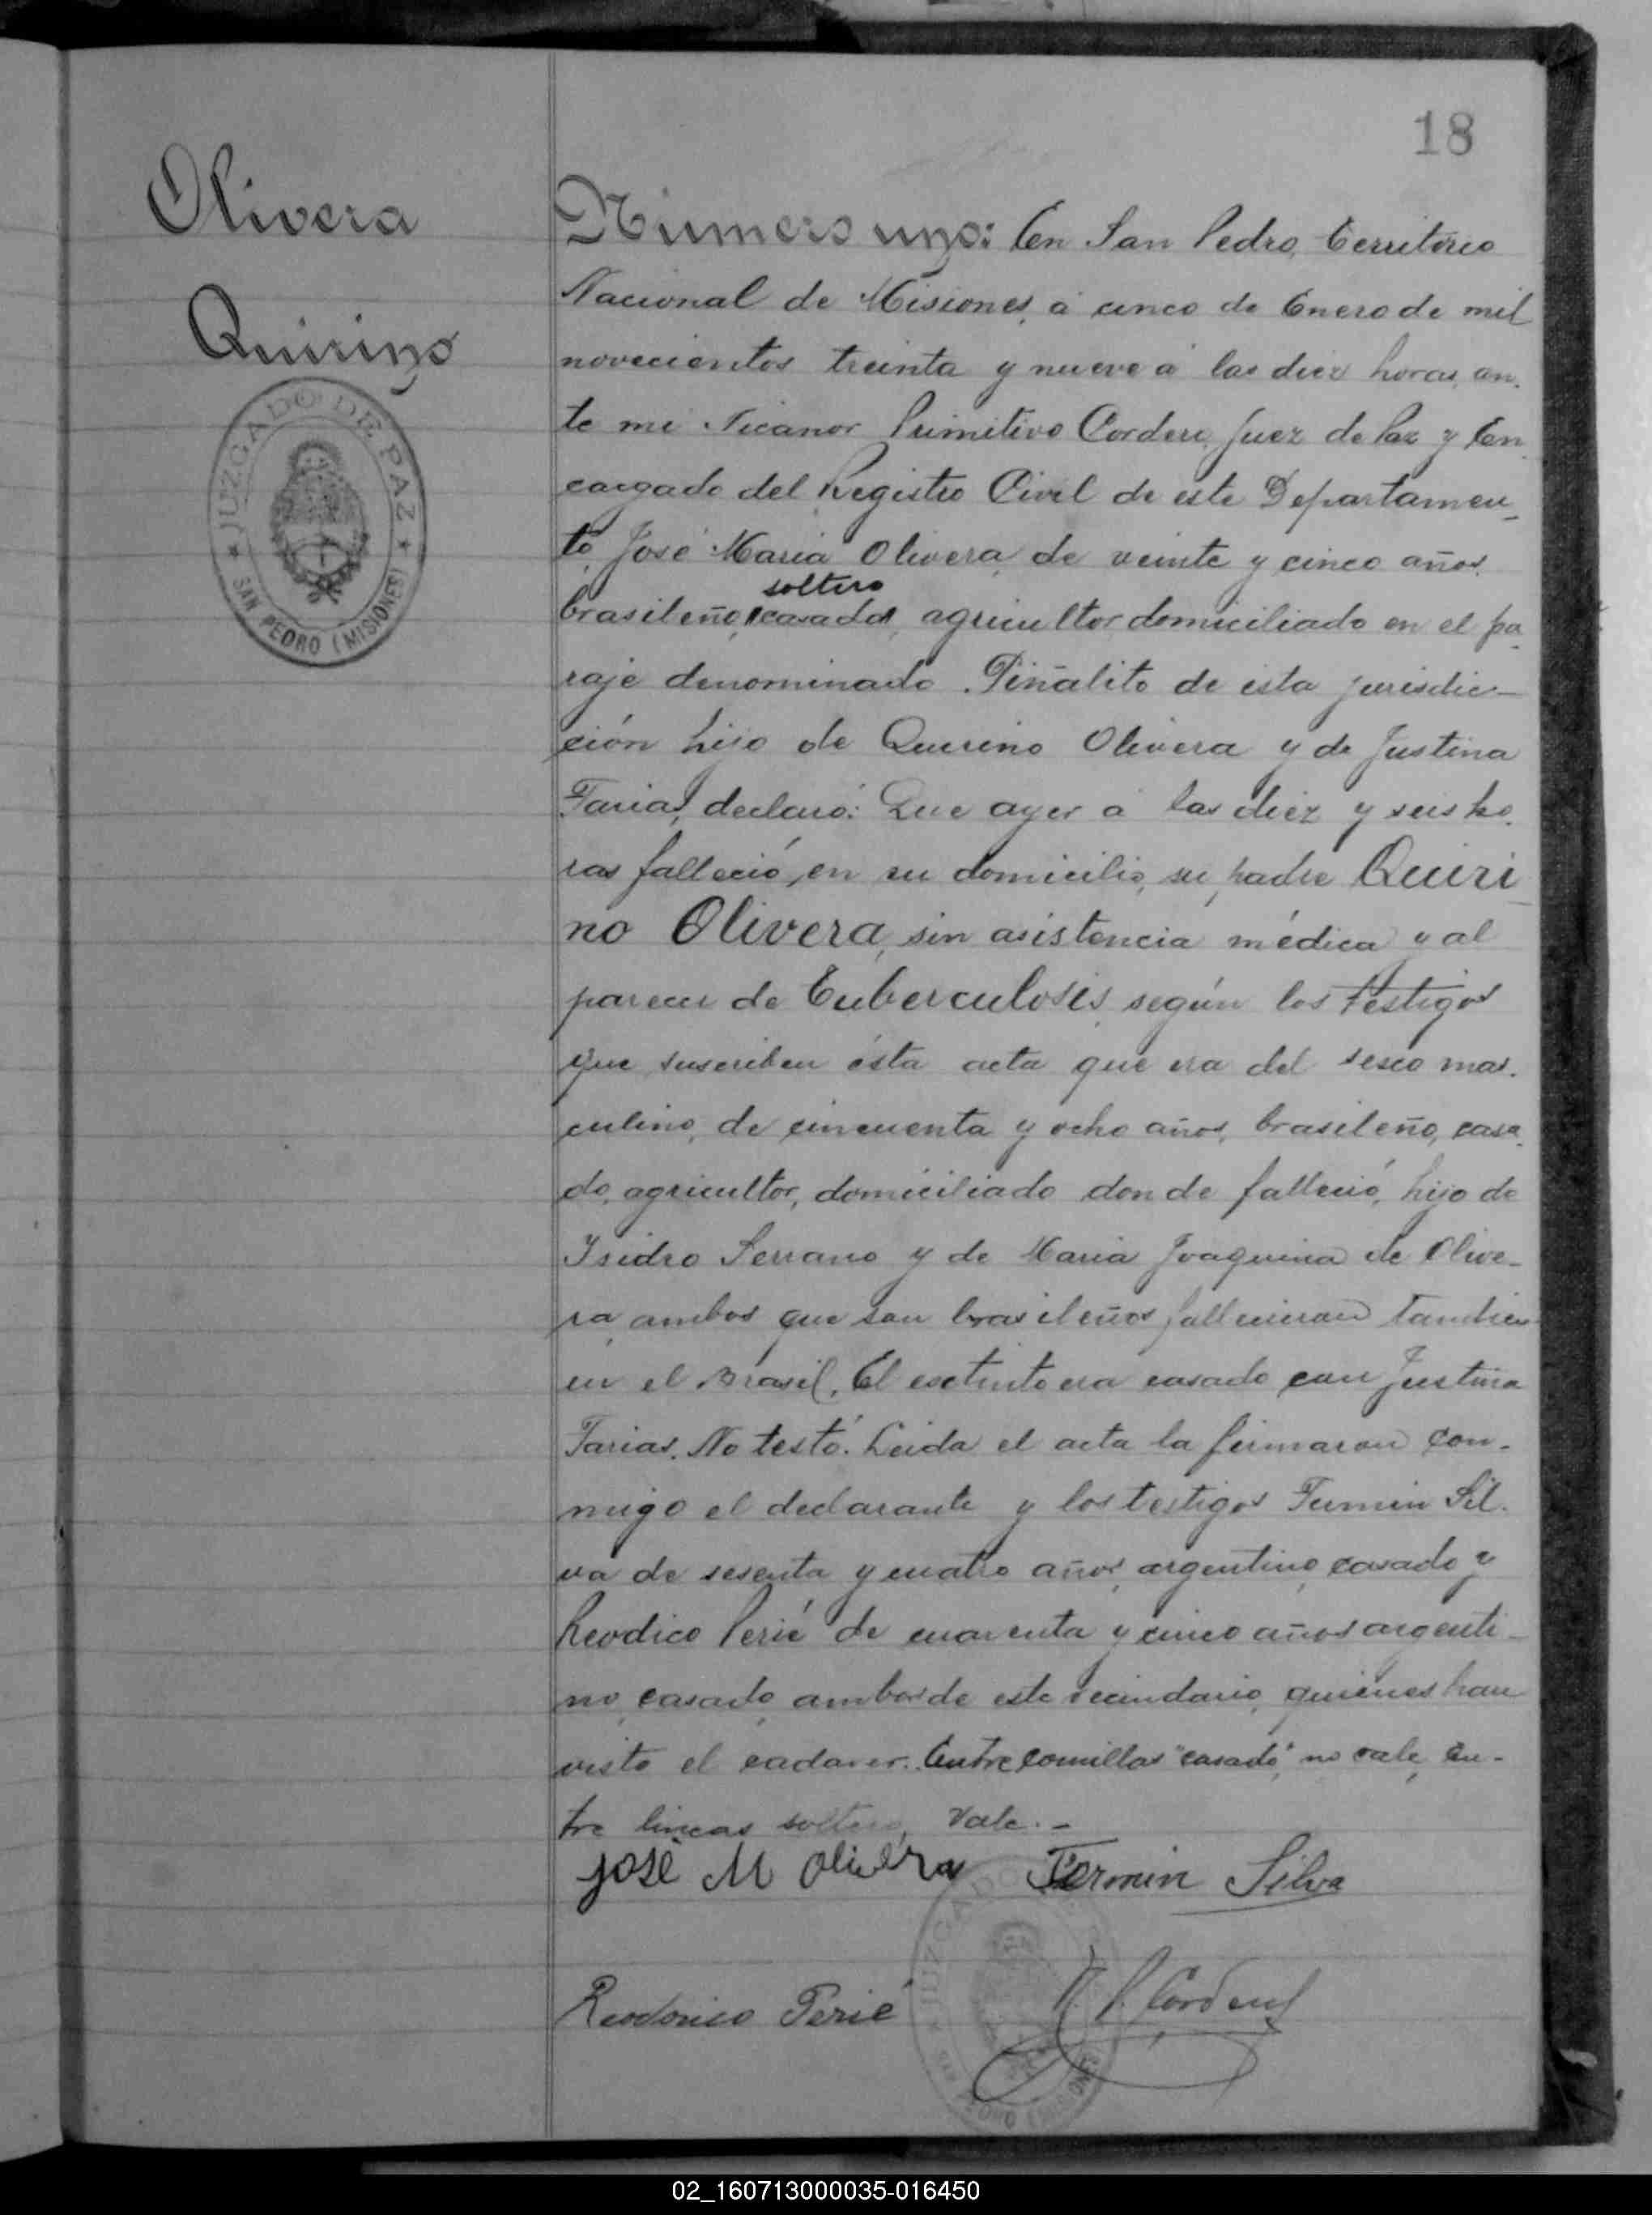 18
Olivera
Quirino
JUZGADO DE PAZ
SAN PEDRO (MISIONES)
Número uno: En San Pedro, Territorio
Nacional de Misiones, á cinco de Enero de mil
novecientos treinta y nueve á las diez horas, an-
te mi Nicanor Primitivo Cordero, Juez de Paz y En-
cargado del Registro Civil de este Departamen-
to, José Maria Olivera, de veinte y cinco años,
soltero
brasileño, "casado", agricultor domiciliado en el pa-
raje denominado Piñalito de esta jurisdic-
ción hijo de Querino Olivera y de Justina
Farias, declaró: Que ayer á las diez y seis ho-
ras falleció, en su domicilio, su padre Quiri-
no Olivera, sin asistencia médica y al
parecer de Tuberculosis, según los testigos
que suscriben ésta acta que era del sexo mas-
culino, de cincuenta y ocho años, brasileño, casa-
do, agricultor, domiciliado donde falleció, hijo de
Isidro Serrano y de Maria Joaquina de Olive-
ra, ambos que son brasileños fallecieron tambien
en el Brasil. El extinto era casado con Justina
Farias. No testó. Leida el acta la firmaron con-
migo el declarante y los testigos Fermin Sil-
va de sesenta y cuatro años, argentino, casado y
Reodico Perié de cuarenta y cinco años argenti-
no, casado, ambos de este vecindario, quienes han
visto el cadaver. Entre comillas "casado", no vale, En-
tre lineas soltero, Vale.-
José M Olivera Fermin Silva
Reodorico Perié N. P. Cordero
JUZGADO
02_160713000035-016450